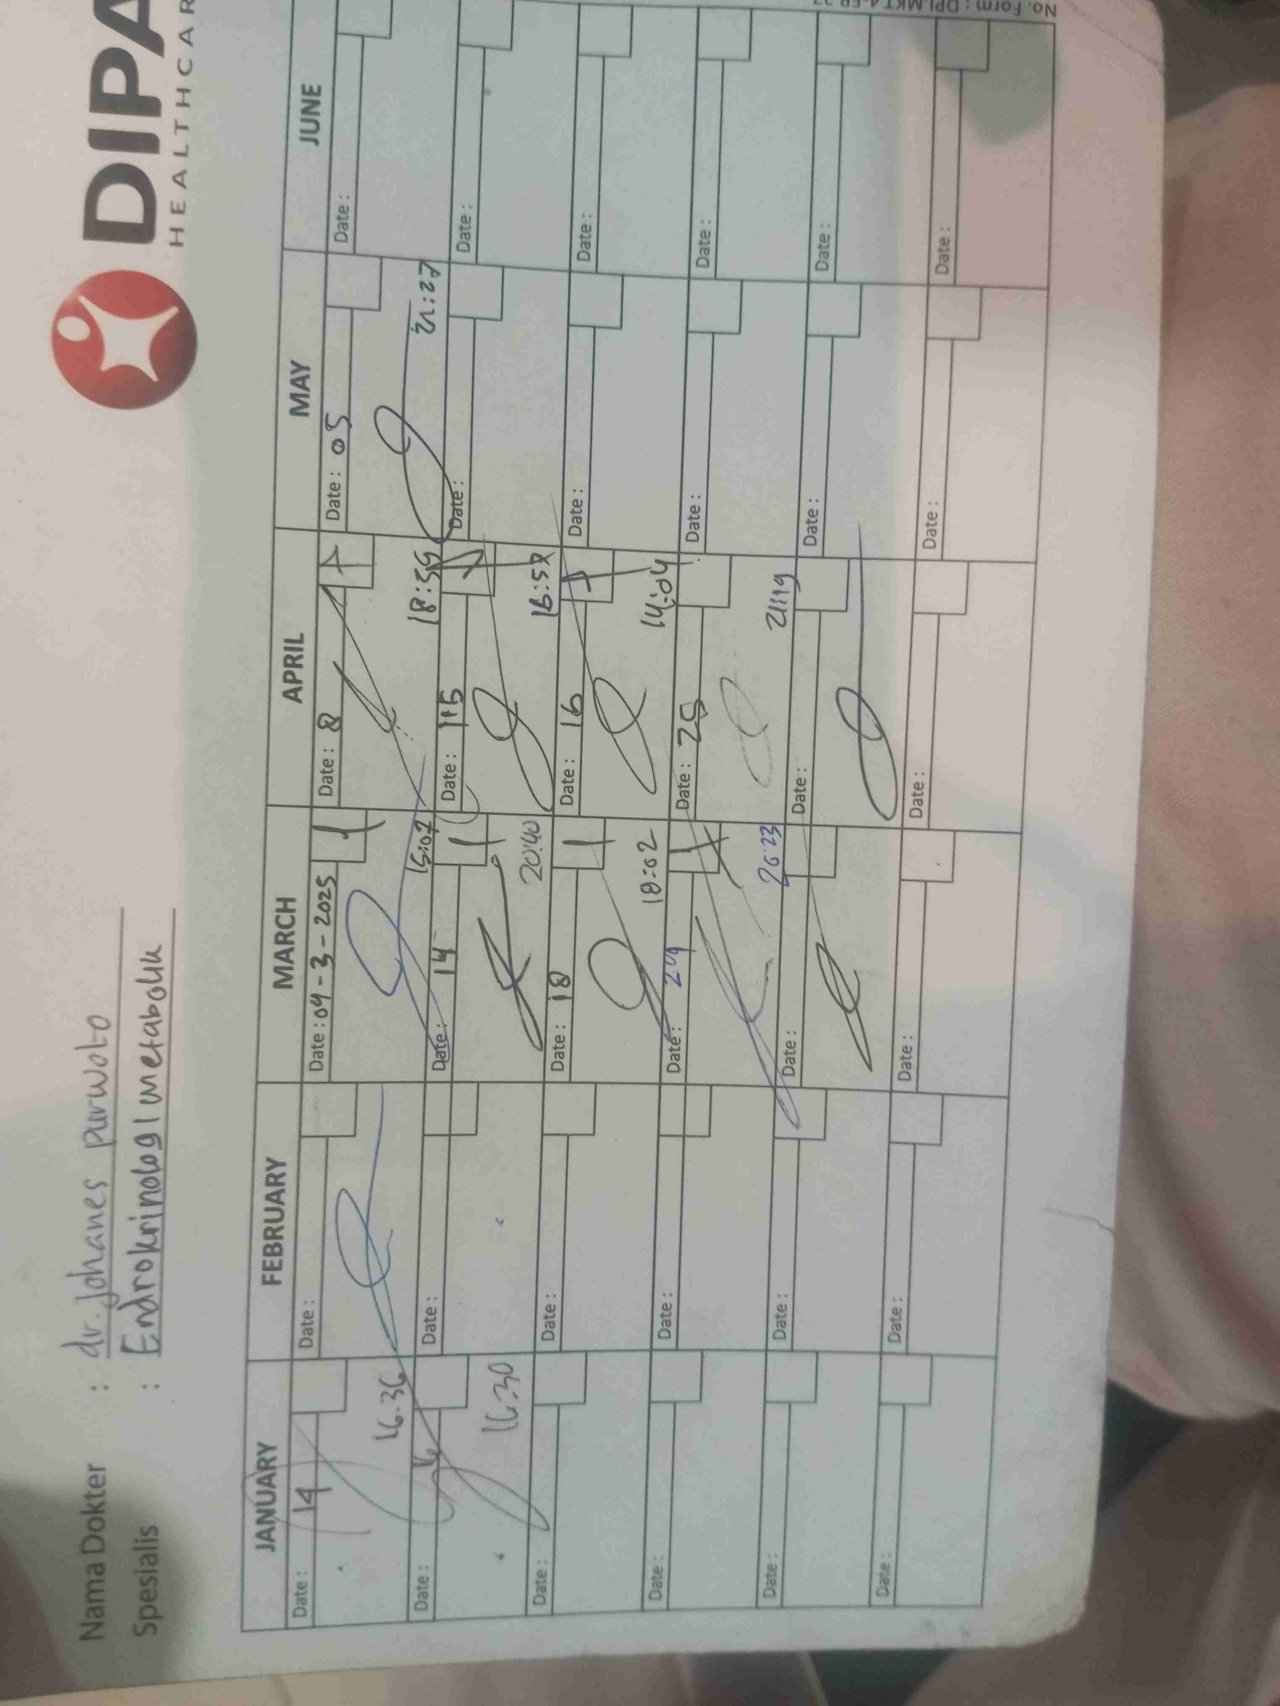 DIPA
HEALTHCAR
Nama Dokter : dr. Johanes purwoto
Spesialis : Endrokrinologi metabolik
JANUARY FEBRUARY MARCH APRIL MAY JUNE
Date : 14 Date : Date : 04-3-2025 Date : 8 Date : 05 Date :
16.36 15:07 18:59 21:27
Date : Date : Date : 14 Date : 15 Date : Date :
16.30 20:40 16:58
Date : Date : Date : 18 Date : 16 Date : Date :
18:02 14:04
Date : Date : Date : 24 Date : 25 Date : Date :
20.23 21:19
Date : Date : Date : Date : Date : Date :
Date : Date : Date : Date : Date : Date :
No. Form : DPI.MKT